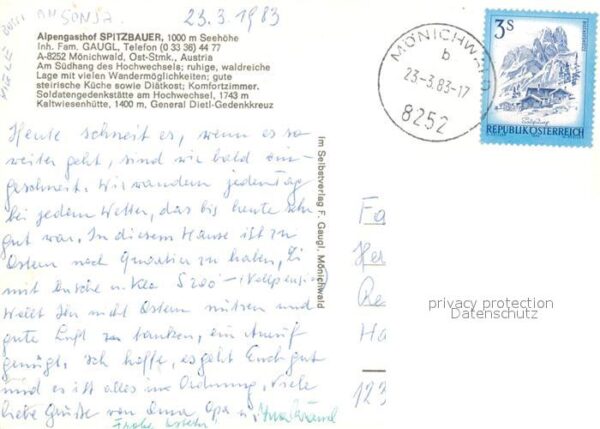 23.3.1983
Alpengasthof SPITZBAUER, 1000 m Seehöhe
Inh. Fam. GAUGL, Telefon (0 33 36) 44 77
A-8252 Mönichwald, Ost-Stmk., Austria
Am Südhang des Hochwechsels; ruhige, waldreiche
Lage mit vielen Wandermöglichkeiten; gute
steirische Küche sowie Diätkost; Komfortzimmer.
Soldatengedenkstätte am Hochwechsel, 1743 m
Kaltwiesenhütte, 1400 m, General Dietl-Gedenkkreuz
Heute schneit es, wenn es so
weiter geht, sind wir bald ein-
geschneit. Wir wandern jeden Tag
bei jedem Wetter, das bis heute sehr
gut war. In diesem Hause ist zu
Ostern noch Quartier zu haben,
mit Dusche u. Klo S 200 (Vollpension)
Wollt Ihr nicht Ostern nützen und
gute Luft zu tanken, ein Anruf
genügt. Ich hoffe, es geht Euch gut
und es ist alles in Ordnung. Viele
liebe Grüße von Oma, Opa u.
Frohe Ostern
Im Selbstverlag F. Gaugl, Mönichwald
MÖNICHWALD
b
23.-3.83-17
8252
3S
REPUBLIK ÖSTERREICH
Fa
Her
Re
Ha
123
privacy protection
Datenschutz